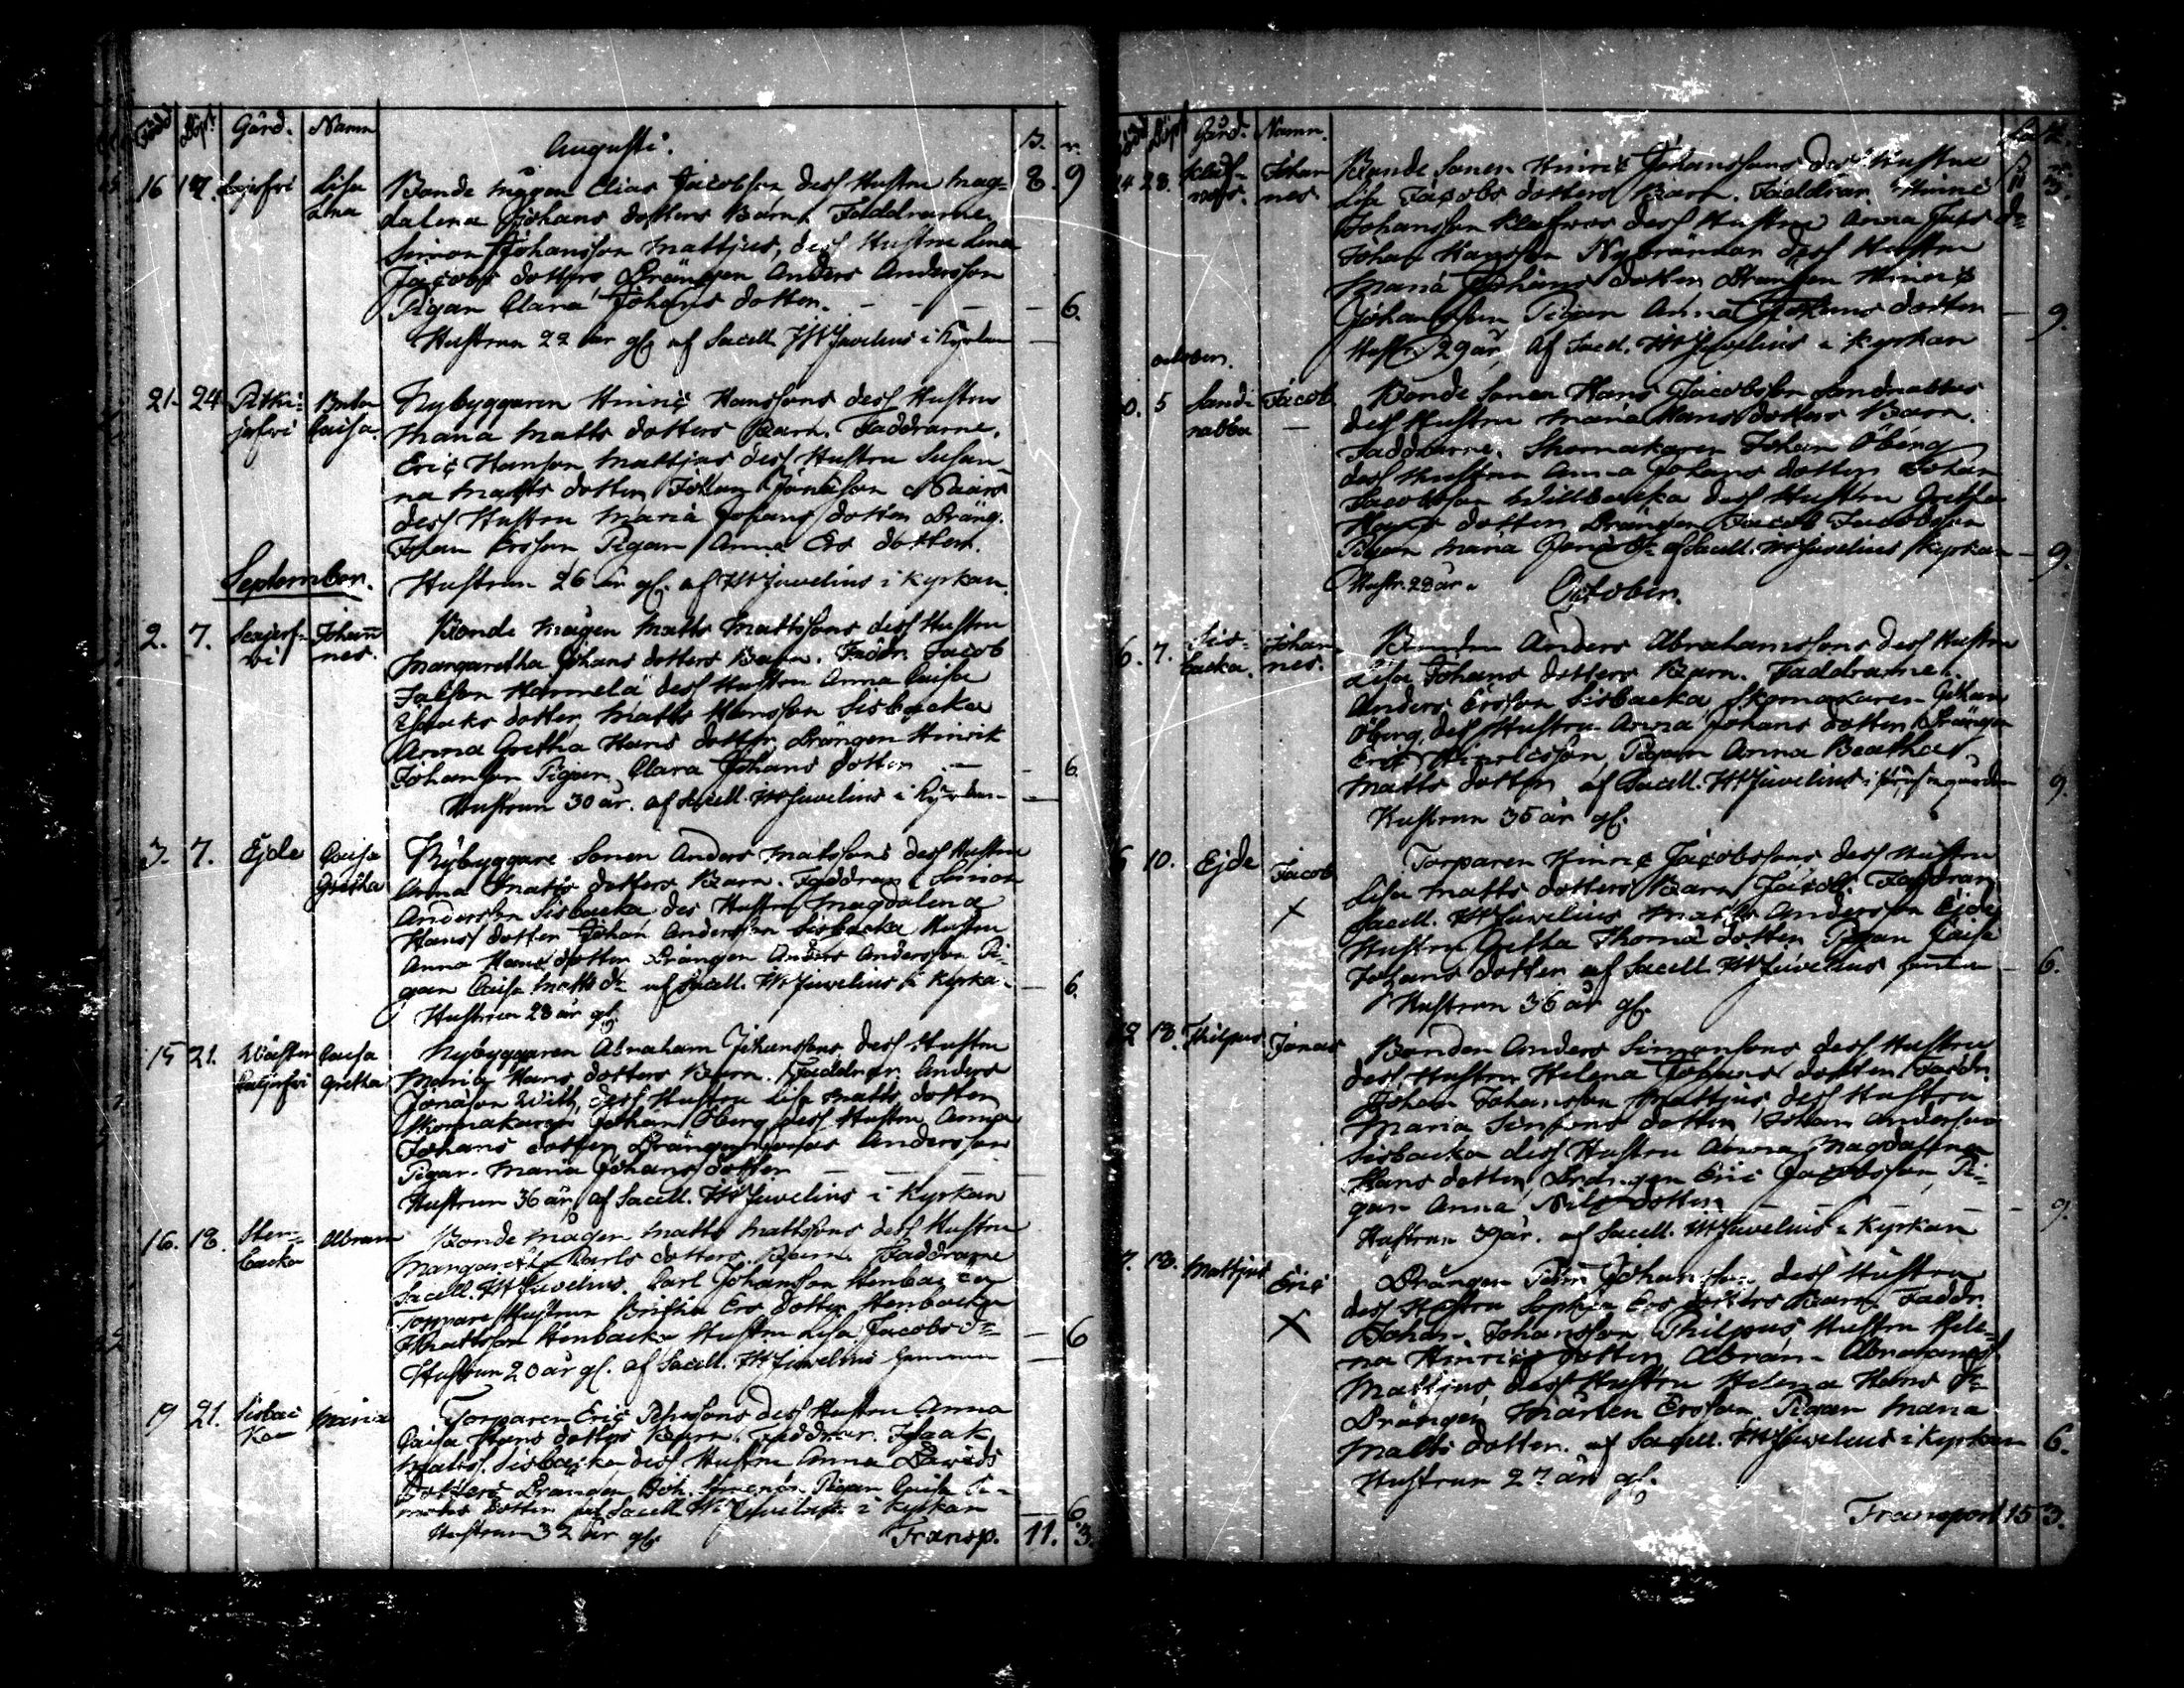 Född Döpt Gård. Namn
Augusti. B. r.
16 17. Lisa Bonde mågen Elias Jacobsson dess Hustru Mag- 8. 9
Lena dalena Johans dotters Barn. Faddrarne
Simon Johansson Mattjus, dess Hustru Lena
Jacobs dotter Drängen Anders Andersson
Pigan Clara Johans dotter. 6.
Hustrun 22 år gl. af Sacell. JW Juvelius i Kyrkan
21. 24 Caisa. Nybyggaren Hinric Hanssons dess Hustru
Maria Matts dotters Barn. Faddrarne.
Eric Hanson Mattjus dess Hustru Susan-
na Matts dotter, Johan Jonasson
dess Hustru Maria Johans dotter Dräng.
Johan Ersson Pigan Anna Ers dotter.
September. Hustrun 26 år gl. af JW Juvelius i Kyrkan.
2. 7. Johan Bonde Mågen Matts Mattssons dess Hustru
nes. Margaretha Johans dotters Barn. Faddr. Jacob
dess Hustru Anna Caisa
Isaaks dotter, Matts Hansson Sisbacka
Anna Gretha Hans dotter Drängen Hinrik
Johansson Pigan Clara Johans dotter 6.
Hustrun 30 år. af Sacell. JW Juvelius i Kyrkan
3. 7. Ejde Caisa Nybyggare Sonen Anders Matssons dess Hustru
Gretha Anna Matts dotters Barn. Faddrar Simon
Andersson Sisbacka des Hustru Magdalena
Hans dotter Johan Andersson Sisbacka Hustru
Anna Hans dotter Drängen Anders Andersson Pi-
gan Caisa Matts dr af Sacell. JW Juvelius i Kyrka- 6.
Hustrun 28 år gl.
15 21. Caisa Nybyggaren Abraham Johanssons dess Hustru
Gretha Maria Hans dotters Barn. Faddrar. Anders
Jonasson With, dess Hustru Lisa Matts dotter
Skomakaren Johan Öberg dess Hustru Anna
Johans dotter Drängen Jonas Andersson
Pigan. Maria Johans dotter
Hustrun 36 år, af Sacell. JW Juvelius i Kyrkan
16. 18. Sten- Abram Bonde mågen Matts Mattssons dess Hustru
backa Margaretha Carls dotters Barn. Faddrarne
Sacell. JW Juvelius. Carl Johansson Stenbacka
Torppare Hustrun Ers dotter Stenbacka
Mattsson Stenbacka Hustru Lisa Jacobs dr 6
Hustrun 20 år gl. af Sacell. JW Juvelius hemma
19 21. Sisbac Maria Torparen Eric Pehrsons dess Hustru Anna
ka Caisa Hans dotters Barn. Faddrar. Isaak
Matts. Sisbacka dess Hustru Anna Davids
dotter Drängen Joh. Simons. Pigan Caisa Si-
mons dotter af Sacell. JW Juvelius i Kyrkan 6.
Hustrun 32 år gl. Transp. 11. 3.
Född Döpt Gård. Namn.
24 28. Johan Bonde Sonen Hinric Johanssons dess Hustru 11 3.
nes. Lisa Jacobs dotters Barn. Faddrar. Hinric
Johansson dess Hustru Anna Jacobs dr
Johan Hansson Nybrännar dess Hustru
Maria Johans dotter Drängen Hinric
Johansson Pigan Anna Johans dotter 9.
october. Hustr. 29 år, af Sacell. JW Juvelius i Kyrkan
5 Sand- Jacob Bonde Sonen Hans Jacobsson Sandnabbas
nabba dess Hustru Maria Hans dotters Barn.
Faddrarne. Skomakaren Johan Öberg
dess Hustru Anna Johans dotter Johan
Jacobsson Willbacka dess Hustru Gretha
Hans dotter Drängen Jacob Jacobsson
Pigan Maria dr af Sacell. JW Juvelius Kyrkan 9.
Hustr. 28 år. October.
6. 7. Sis- Johan Bonden Anders Abrahamssons dess Hustru
backa. nes. Lisa Johans dotters Barn. Faddrarne.
Anders Ersson Sisbacka Skomakaren Johan
Öberg, dess Hustru Anna Johans dotter Drängen
Eric Hinricsson, Pigan Anna Beatha
Matts dotter af Sacell. JW Juvelius i 9.
Hustrun 35 år gl.
6 10. Ejde Jacob Torparen Hinric Jacobssons dess Hustru
Lisa Matts dotters Barn Jacob. Faddrar
X Sacell. JW Juvelius Matts Andersson Ejde
Hustru Gretha Thoma dotter Pigan Caisa
Johans dotter af Sacell. JW Juvelius hemma 6.
Hustrun 36 år gl.
12 18. Philpus Jonas Bonden Anders Simonsons dess Hustru
dess Hustru Helena Johans dotter Faddr.
Johan Johansson Mattjus dess Hustru
Maria Simons dotter Johan Andersson
Sisbacka dess Hustru Anna Magdalena
Hans dotter, Drängen Eric Jacobsson, Pi-
gan Anna Nils dotter 9.
Hustrun 39 år. af Sacell. JW Juvelius i Kyrkan
7. 18. Mattjus Eric Drängen Pehr Johansson dess Hustru
dess Hustru Sophia Ers dotters Barn. Faddr.
X Johan Johansson Philpus Hustru Hele-
na Hinrics dotter, Abram Abrahams
Mattjus, dess Hustru Helena Hans dr
Drängen Mårten Ersson, Pigan Maria
Matts dotter. af Sacell. JW Juvelius i Kyrkan 6.
Hustrun 27 år gl.
Transport 15 3.